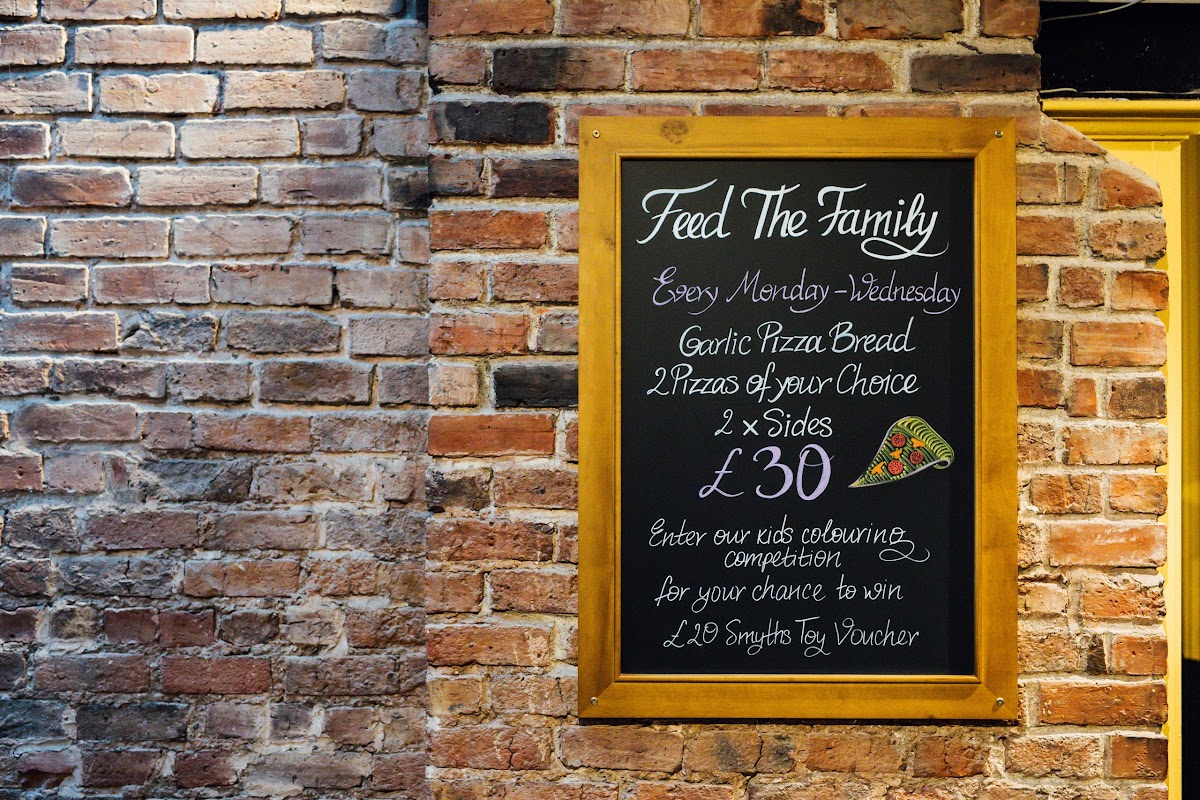 Feed The Family
Every Monday - Wednesday
Garlic Pizza Bread
2 Pizzas of your Choice
2 x Sides
£30
Enter our kids colouring
competition
for your chance to win
£20 Smyths Toy Voucher